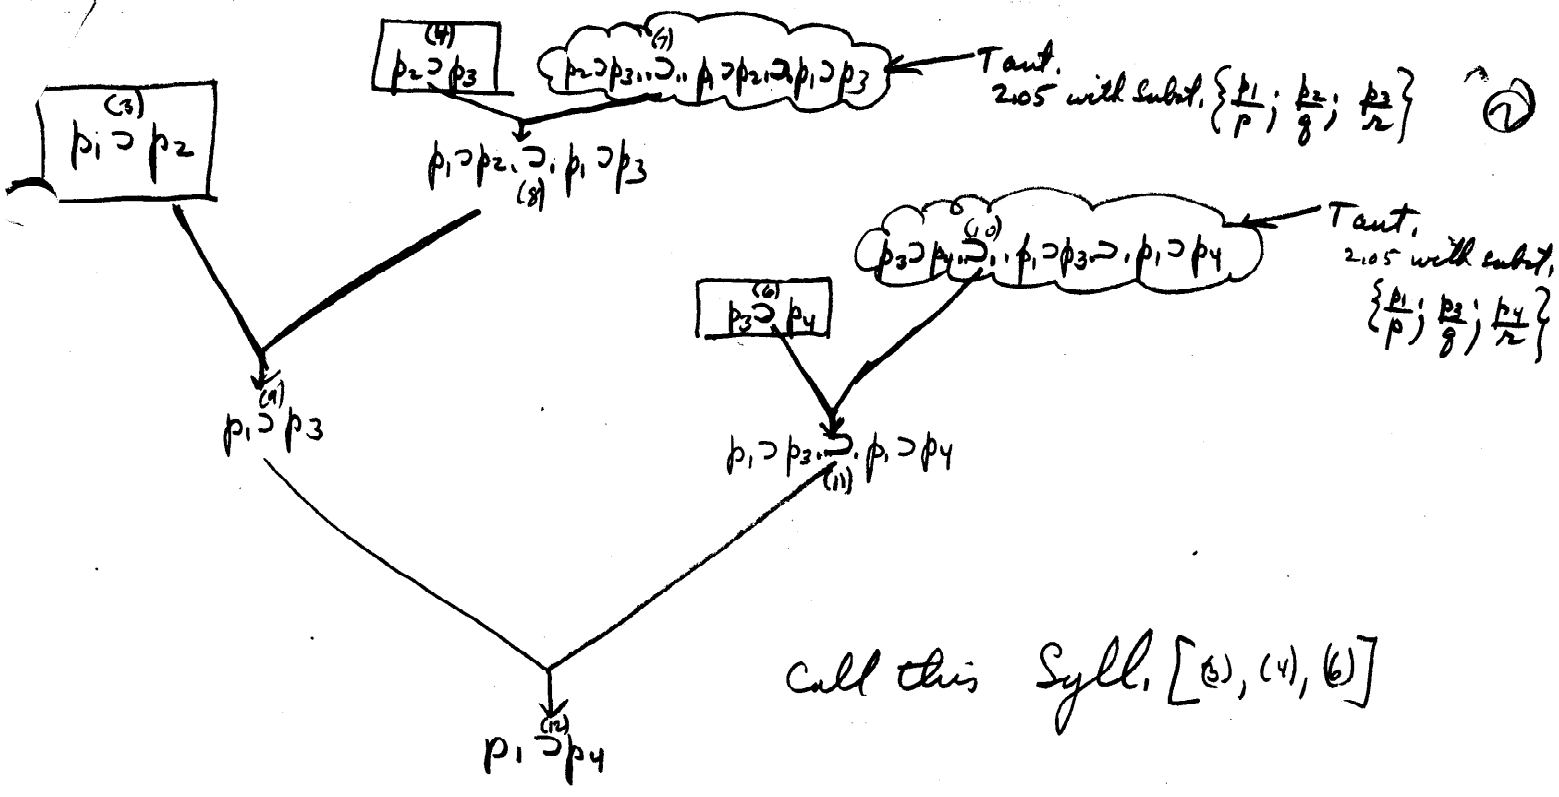 (4)
p2 ⊃ p3
(7)
p2 ⊃ p3 .. ⊃ .. p1 ⊃ p2 . ⊃ . p1 ⊃ p3
Taut.
2.05 with subst. {p1/p ; p2/q ; p3/r}
2
(3)
p1 ⊃ p2
p1 ⊃ p2 . ⊃ . p1 ⊃ p3
(8)
(10)
p3 ⊃ p4 .. ⊃ .. p1 ⊃ p3 . ⊃ . p1 ⊃ p4
Taut.
2.05 with subst.
{p1/p ; p3/q ; p4/r}
(6)
p3 ⊃ p4
(9)
p1 ⊃ p3
p1 ⊃ p3 . ⊃ . p1 ⊃ p4
(11)
Call this Syll. [(3), (4), (6)]
(12)
p1 ⊃ p4